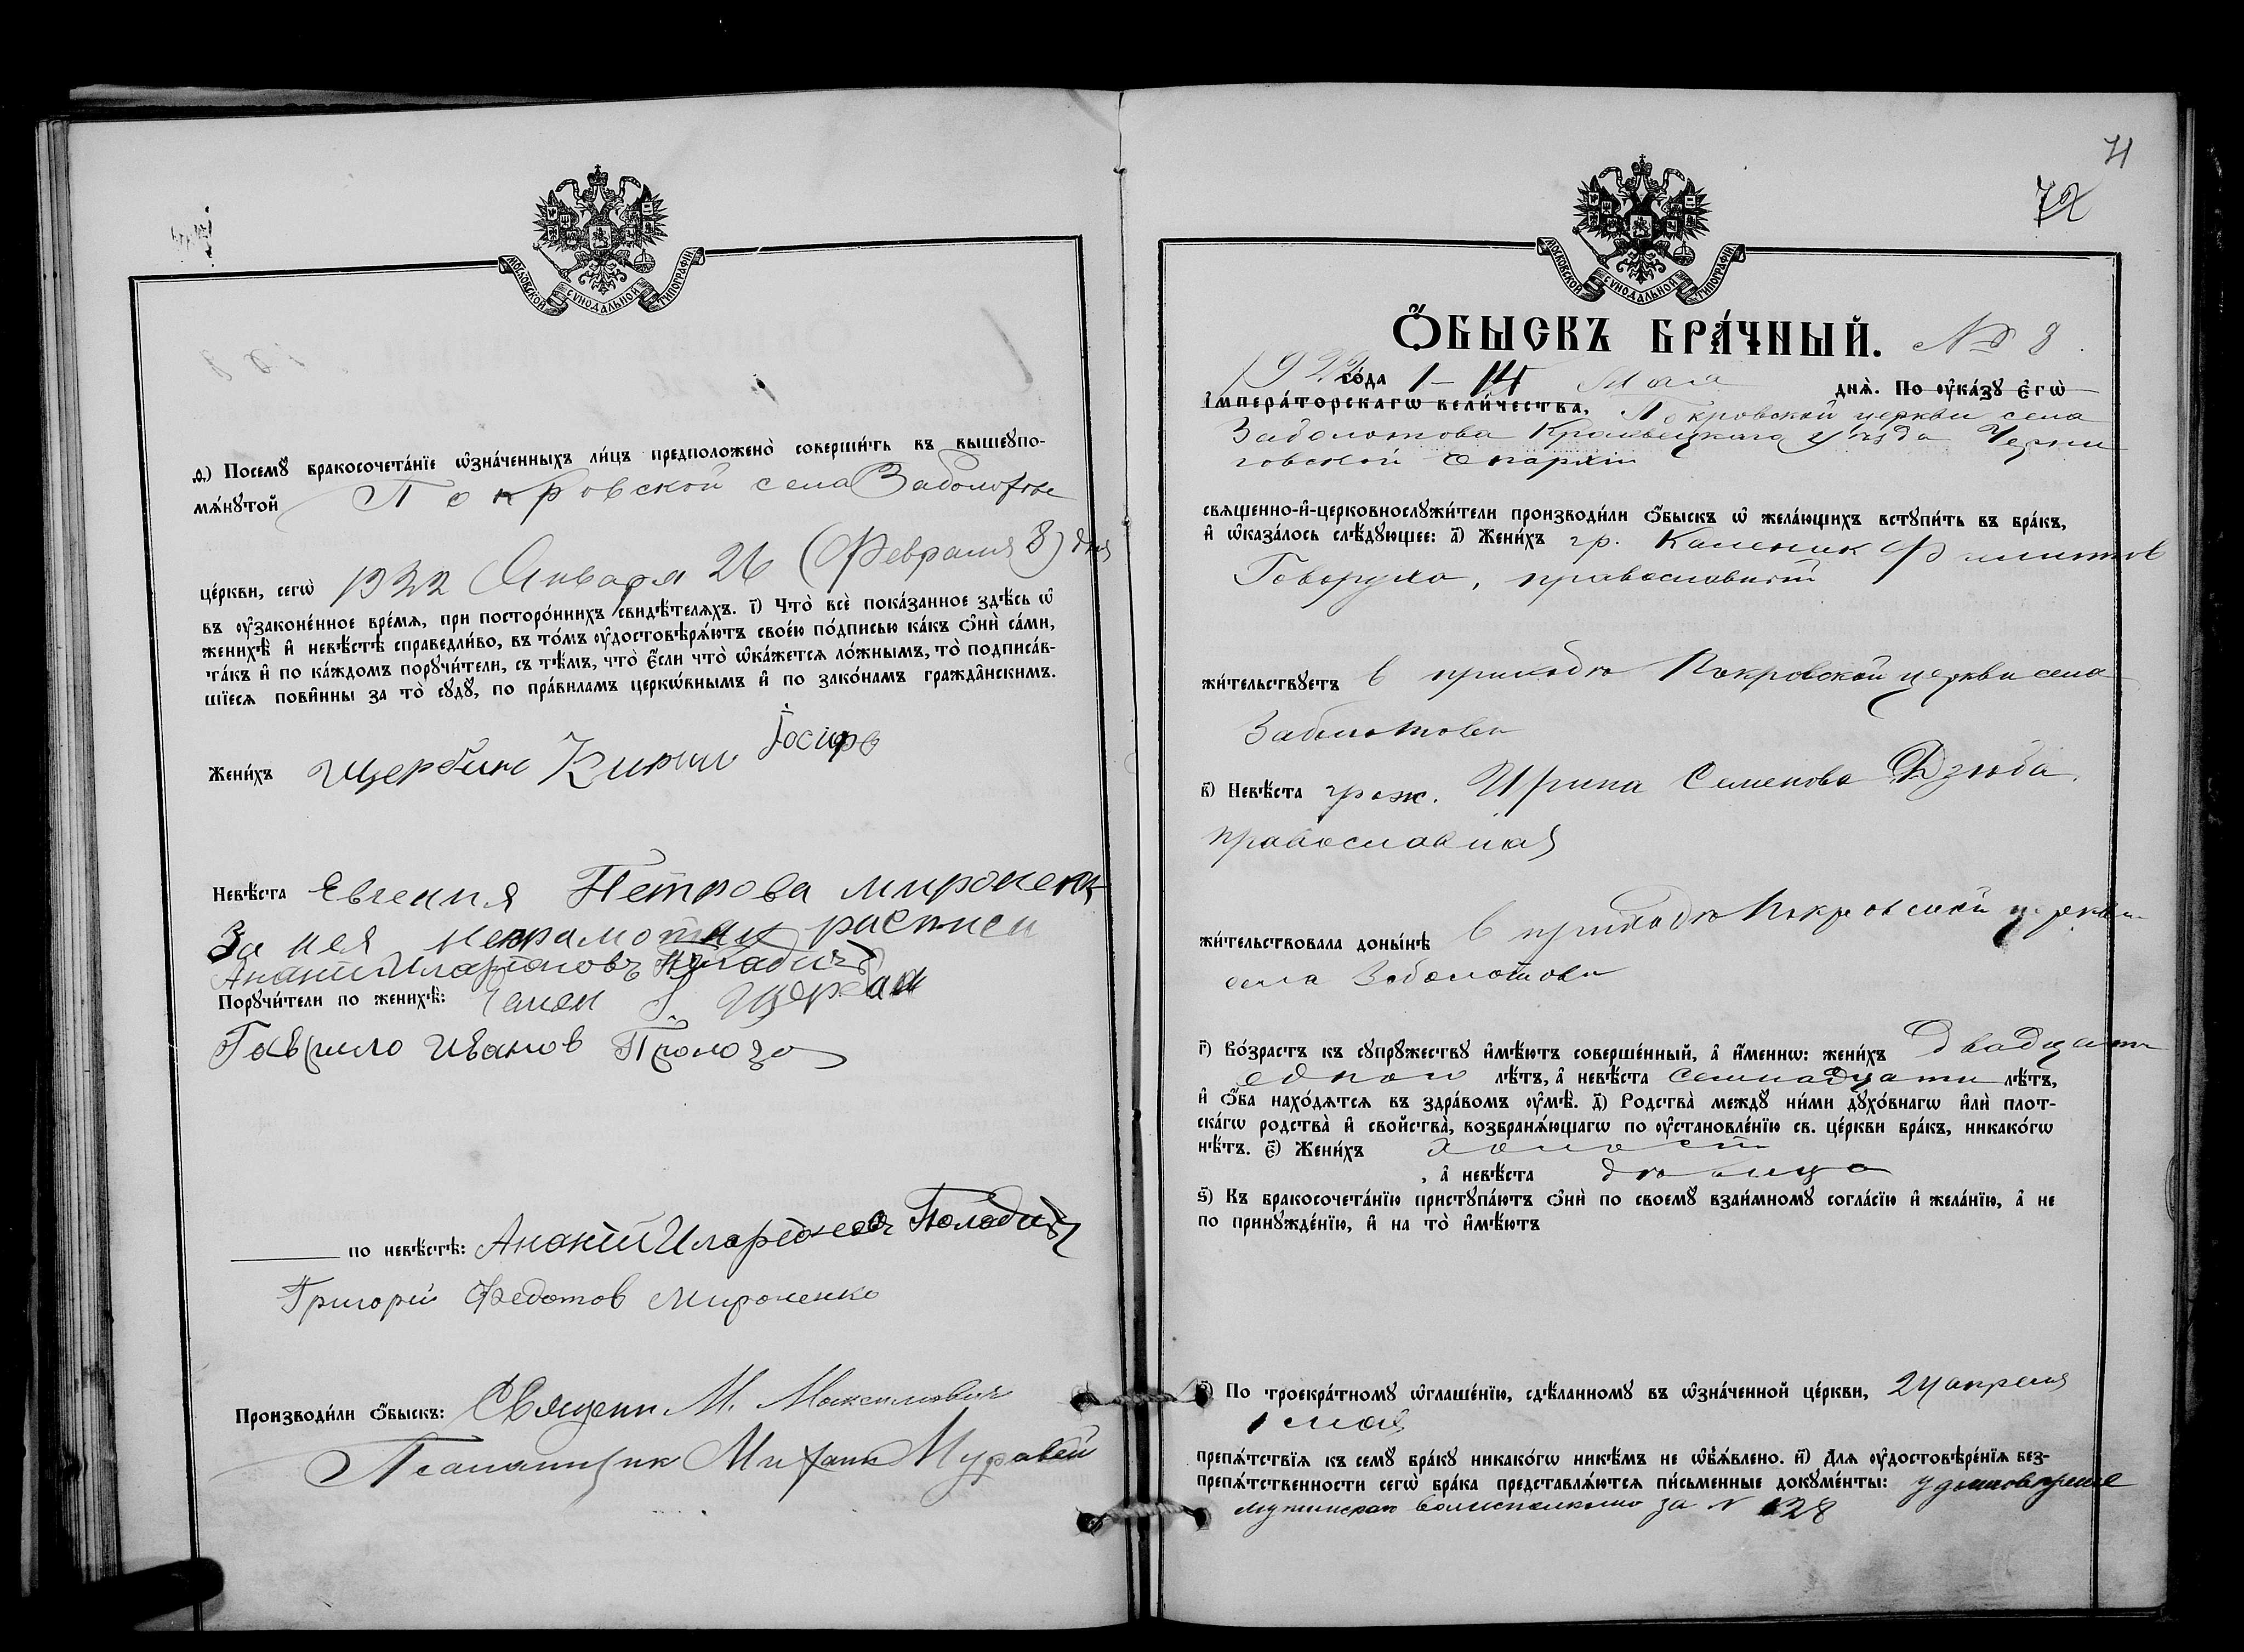 МОСКОВСКОЙ СѴНОДАЛЬНОЙ ТИПОГРАФІИ
ѳ҃) Посемꙋ̀ бракосочета́нїе ѡ҆зна́ченныхъ ли́цъ предположено̀ соверши́ть въ вышеꙋпо-
мѧ́нꙋтой Покровской села Заболотова
це́ркви, сегѡ̀ 1922 Января 26 (Февраля 8) дня
въ ᲂу҆законе́нное вре́мѧ, при посторо́ннихъ свидѣ́телѧхъ. і҃) Что̀ всѐ пока́занное здѣ́сь ѡ҆
женихѣ̀ и҆ невѣ́стѣ справедли́во, въ то́мъ ᲂу҆достовѣрѧ́ютъ свое́ю по́дписью ка́къ ѻ҆нѝ са́ми,
та́къ и҆ по ка́ждомъ порꙋчи́тели, съ тѣ́мъ, что̀ є҆́сли что̀ ѡ҆ка́жетсѧ ло́жнымъ, то̀ подписа́в-
шїесѧ пови́нны за то̀ сꙋдꙋ̀, по пра́виламъ церкѡ́внымъ и҆ по зако́намъ гражда̂нскимъ.
Жени́хъ Щербина Кирил Іосифо
Невѣ́ста Евгения Петрова мироненк
За нея неграмотну расписа
Ананій Иларіоновъ
Порꙋчи́тели по женихѣ̀: Щербан
Гаврило Иванов Прологов
по невѣ́стѣ: Ананій Иларіоновъ
Григорій Федотов Мироненко
Производи́ли ѻ҆́быскъ: Священ М. Максимович
Псаломщик Михаил Муравей
71
72
МОСКОВСКОЙ СѴНОДАЛЬНОЙ ТИПОГРАФІИ
Ѻ҆́БЫСКЪ БРА́ЧНЫЙ. № 8
1922 го́да 1–14 Мая днѧ̀. По ᲂу҆ка́зꙋ є҆гѡ̀
і҆мпера́торскагѡ вели́чества, Покровской церкви села
Заболотова Кролевецкаго уезда Черни
говской Епархіи
свѧще́нно-и҆-церковнослꙋжи́тели производи́ли ѻ҆́быскъ ѡ҆ жела́ющихъ встꙋпи́ть въ бра́къ,
и҆ ѡ҆каза́лось слѣ́дꙋющее: а҃) Жени́хъ гр. Каленик
Говоруха, православный
жи́тельствꙋетъ в приходѣ Покровской церкви села
Заболотова
в҃) Невѣ́ста граж. Ирина Семенова Дзюба,
православная
жи́тельствовала доны́нѣ в приходѣ Покровской церкви
села Заболотова
г҃) Во́зрастъ къ сꙋпрꙋ́жествꙋ и҆мѣ́ютъ соверше́нный, а҆ и҆́меннѡ: жени́хъ двадцати
одного лѣ́тъ, а҆ невѣ́ста семнадцати лѣ́тъ,
и҆ ѻ҆́ба нахо́дѧтсѧ въ здра́вомъ ᲂу҆мѣ̀. д҃) Родства̀ междꙋ̀ ни́ми дꙋхо́внагѡ и҆лѝ плот-
ска́гѡ родства̀ и҆ сво́йства̀, возбранѧ́ющагѡ по ᲂу҆становле́нїю св. це́ркви бра́къ, никако́гѡ
нѣ́тъ. є҃) Жени́хъ холост
, а҆ невѣ́ста дѣвица
ѕ҃) Къ бракосочета́нїю пристꙋпа́ютъ ѻ҆нѝ по своемꙋ̀ взаи́мномꙋ согла́сїю и҆ жела́нїю, а҆ не
по принꙋжде́нїю, и҆ на то̀ и҆мѣ́ютъ
з҃) По троекра́тномꙋ ѡ҆глаше́нїю, сдѣ́ланномꙋ въ ѡ҆зна́ченной це́ркви, 24 апреля
1 мая
препѧ́тствїѧ къ семꙋ̀ бра́кꙋ никако́гѡ никѣ́мъ не ѡ҆б̾ѧ́влено. и҃) Для ᲂу҆достовѣре́нїѧ без-
препѧ́тственности сегѡ̀ бра́ка представлѧ́ютсѧ пи́сьменные докꙋме́нты: удостоверение
волисполкома за № 128